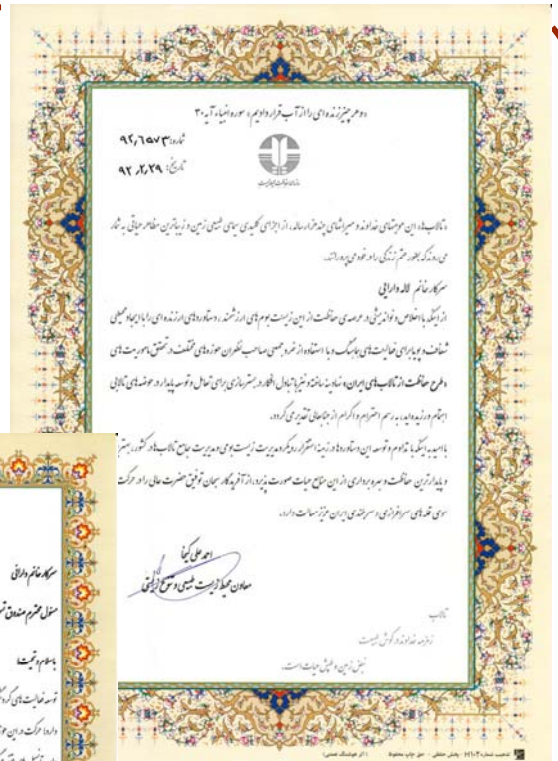 «و هر چیز زنده ای را از آب قرار دادیم» سوره انبیاء آیه ۳۰
شماره: ۹۲٫۶۵۷۳
تاریخ: ۹۲٫۲٫۲۹
سازمان حفاظت محیط زیست
«تالاب ها، این موهبتهای خداوند و میراثهای چند هزار ساله، از اجزای کلیدی سیمای طبیعی زمین و زیباترین مظاهر حیاتی به شمار
می روند که بطور مستمر زندگی را در خود می پرورانند.
سرکار خانم لاله دارایی
از اینکه با اخلاص و نواندیشی در عرصه ی حفاظت از این زیست بوم های ارزشمند، دستاوردهای ارزنده ای را با ایجاد محیطی
شفاف و پویا برای فعالیت های هماهنگ و با استفاده از خرد جمعی صاحب نظران حوزه های مختلف در تحقق ماموریت های
«طرح حفاظت از تالاب های ایران» نهادینه ساخته و نیز با تبادل افکار در بسترسازی برای تعامل و توسعه پایدار در حوضه های تالابی
اهتمام ورزیده اید، به رسم احترام و اکرام از جنابعالی تقدیر می گردد.
با امید به اینکه با تداوم و توسعه این دستاوردها در زمینه استقرار رویکرد مدیریت زیست بومی و مدیریت جامع تالاب ها در کشور، بهترین
و پایدارترین حفاظت و بهره برداری از این منابع حیات صورت پذیرد، از آفریدگار سبحان توفیق حضرت عالی را در حرکت
سوی قله های سرافرازی و سربلندی ایران عزیز مسالت دارد.
احمد علی کیخا
معاون محیط زیست طبیعی و تنوع زیستی
تالاب
زمزمه خداوند در گوش طبیعت
نبض زمین و طپش حیات است.
سرکار خانم دارائی
مسئول محترم صندوق
با سلام و تحیت
توسعه فعالیت های
دارد؛ حرکت در این